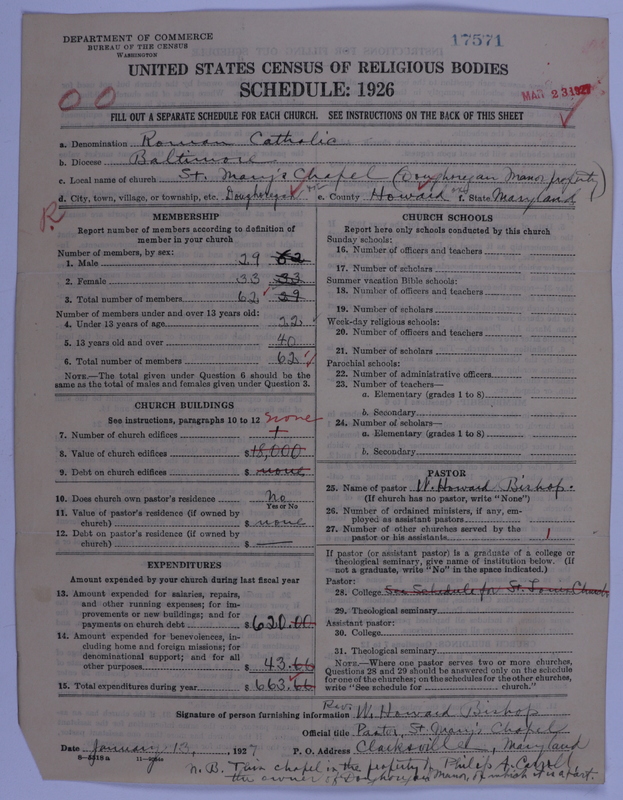 DEPARTMENT OF COMMERCE
BUREAU OF THE CENSUS
WASHINGTON
17571
UNITED STATES CENSUS OF RELIGIOUS BODIES
SCHEDULE: 1926
MAR 23 1927
FILL OUT A SEPARATE SCHEDULE FOR EACH CHURCH. SEE INSTRUCTIONS ON THE BACK OF THIS SHEET
a. Denomination Roman Catholic
b. Diocese Baltimore
c. Local name of church St. Mary's Chapel (Doughoregan Manor property)
d. City, town, village, or township, etc. Doughoregan e. County Howard f. State Maryland
MEMBERSHIP
Report number of members according to definition of member in your church
Number of members, by sex:
1. Male 29 62
2. Female 33 33
3. Total number of members 62 29
Number of members under and over 13 years old:
4. Under 13 years of age 22
5. 13 years old and over 40
6. Total number of members 62
NOTE.—The total given under Question 6 should be the same as the total of males and females given under Question 3.
CHURCH BUILDINGS
See instructions, paragraphs 10 to 12 none
7. Number of church edifices 1
8. Value of church edifices $ 18,000
9. Debt on church edifices $ none
10. Does church own pastor's residence No
Yes or No
11. Value of pastor's residence (if owned by church) $ none
12. Debt on pastor's residence (if owned by church) $ —
EXPENDITURES
Amount expended by your church during last fiscal year
13. Amount expended for salaries, repairs, and other running expenses; for improvements or new buildings; and for payments on church debt $ 620.00
14. Amount expended for benevolences, including home and foreign missions; for denominational support; and for all other purposes $ 43.66
15. Total expenditures during year $ 663.66
CHURCH SCHOOLS
Report here only schools conducted by this church
Sunday schools:
16. Number of officers and teachers
17. Number of scholars
Summer vacation Bible schools:
18. Number of officers and teachers
19. Number of scholars
Week-day religious schools:
20. Number of officers and teachers
21. Number of scholars
Parochial schools:
22. Number of administrative officers
23. Number of teachers—
a. Elementary (grades 1 to 8)
b. Secondary
24. Number of scholars—
a. Elementary (grades 1 to 8)
b. Secondary
PASTOR
25. Name of pastor W. Howard Bishop.
(If church has no pastor, write "None")
26. Number of ordained ministers, if any, employed as assistant pastors
27. Number of other churches served by the pastor or his assistants 1
If pastor (or assistant pastor) is a graduate of a college or theological seminary, give name of institution below. (If not a graduate, write "No" in the space indicated.)
Pastor:
28. College See Schedule for St. Louis Church
29. Theological seminary
Assistant pastor:
30. College
31. Theological seminary
NOTE.—Where one pastor serves two or more churches, Questions 28 and 29 should be answered only on the schedule for one of the churches; on the schedules for the other churches, write "See schedule for church."
Signature of person furnishing information Rev. W. Howard Bishop
Official title Pastor, St. Mary's Chapel
Date January 13, 1927 P. O. Address Clarksville, Maryland
8-5318a
N.B. This chapel is the property of Philip A. Carroll,
the owner of Doughoregan Manor, of which it is a part.